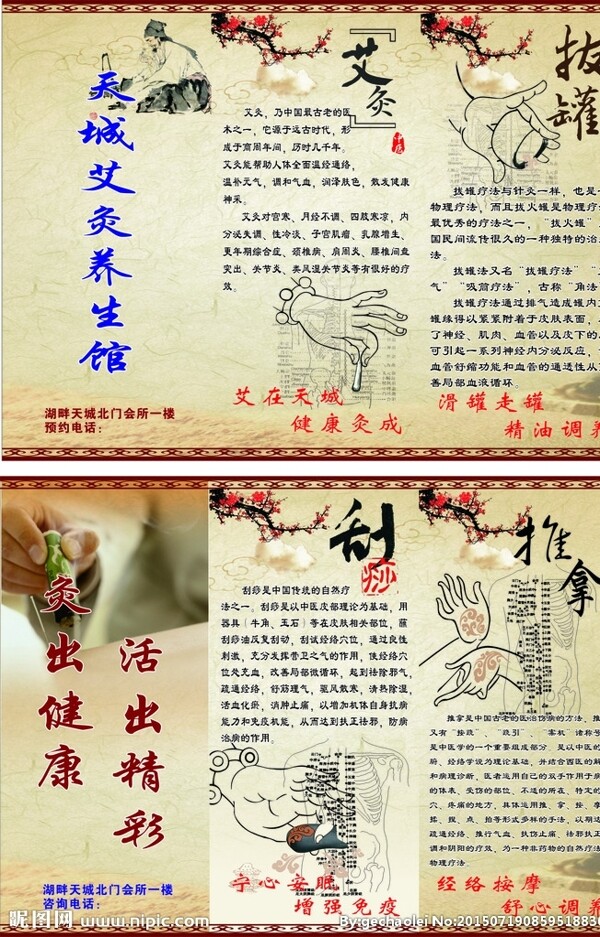 天城艾灸养生馆
湖畔天城北门会所一楼
预约电话：
『艾灸』
中医
艾灸，乃中国最古老的医
术之一，它源于远古时代，形
成于商周年间，历时几千年。
艾灸能帮助人体全面温经通络，
温补元气，调和气血，润泽肤色，散发健康
神采。
艾灸对宫寒、月经不调、四肢寒凉，内
分泌失调、性冷淡、子宫肌瘤、乳腺增生、
更年期综合症、颈椎病、肩周炎、腰椎间盘
突出、关节炎、类风湿关节炎等有很好的疗
效。
艾在天城
健康灸成
拔罐
拔罐疗法与针灸一样，也是一
物理疗法，而且拔火罐是物理疗法
最优秀的疗法之一，“拔火罐”
国民间流传很久的一种独特的治
法。
拔罐法又名“拔罐疗法”
气”“吸筒疗法”，古称“角法
拔罐疗法通过排气造成罐内
罐缘得以紧紧附着于皮肤表面，
了神经、肌肉、血管以及皮下的
可引起一系列神经内分泌反应，
血管舒缩功能和血管的通透性从
善局部血液循环。
滑罐走罐
精油调养
灸出健康
活出精彩
湖畔天城北门会所一楼
咨询电话：
刮痧
刮痧是中国传统的自然疗
法之一。刮痧是以中医皮部理论为基础，用
器具（牛角、玉石）等在皮肤相关部位，蘸
刮痧油反复刮动，刮试经络穴位，通过良性
刺激，充分发挥营卫之气的作用，使经络穴
位处充血，改善局部微循环，起到祛除邪气，
疏通经络，舒筋理气，驱风散寒，清热除湿
活血化瘀，消肿止痛，以增加机体自身抗病
能力和免疫机能，从而达到扶正祛邪，防病
治病的作用。
宁心安眠
增强免疫
推拿
推拿是中国古老的医治伤病的方法，推
又有“按跷”、“跷引”、“案杌”诸称号
是中医学的一个重要组成部分，是以中医的
腑、经络学说为理论基础，并结合西医的解
和病理诊断，医者运用自己的双手作用于病
的体表、受伤的部位、不适的所在、特定的
穴、疼痛的地方，具体运用推、拿、按、摩
揉、捏、点、拍等形式多样的手法，以期达
疏通经络、推行气血、扶伤止痛、祛邪扶正
调和阴阳的疗效，为一种非药物的自然疗法
物理疗法。
经络按摩
舒心调养
昵图网 www.nipic.com
By:gechaolei No:2015071908595188360